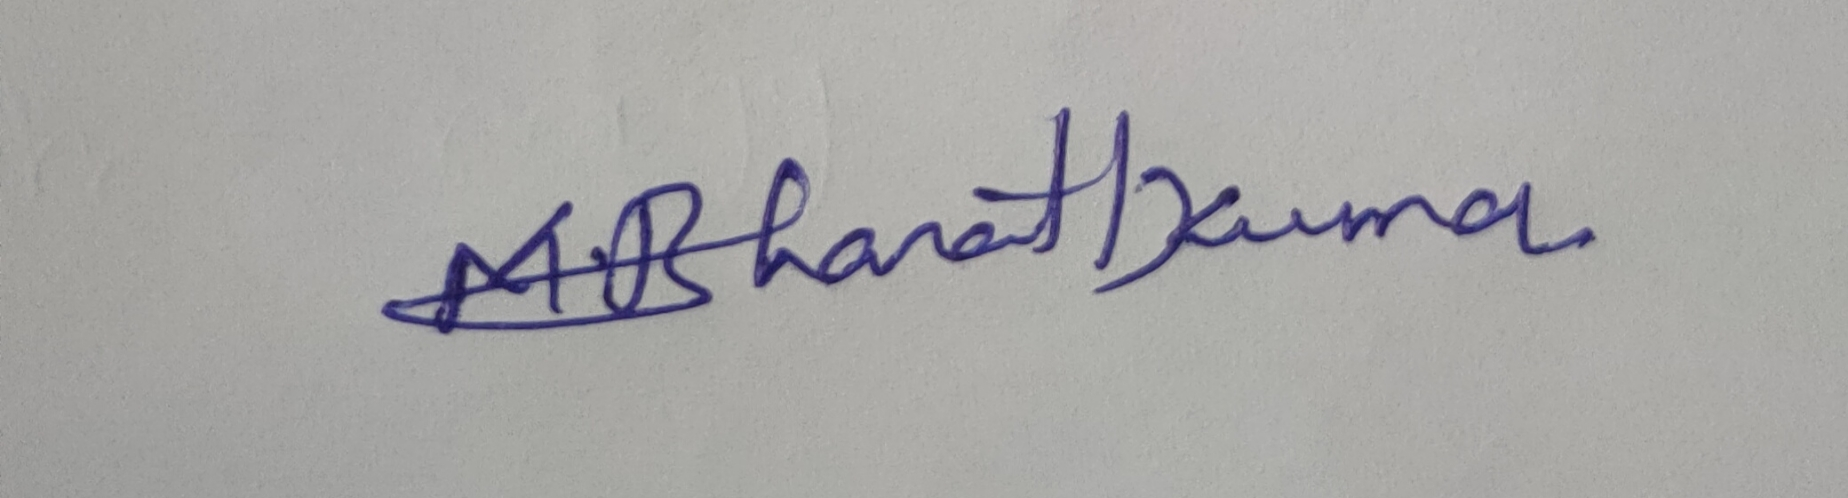 M.Bharat Kumar